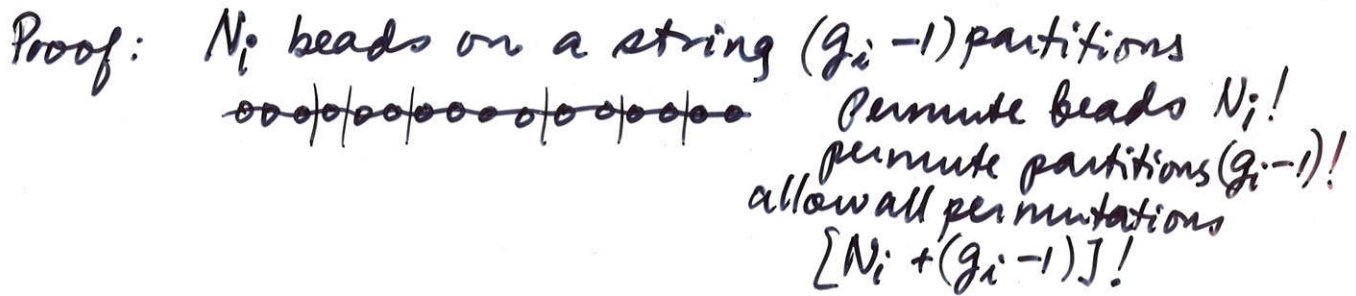 Proof: Ni beads on a string (gi -1) partitions
Permute beads Ni!
permute partitions (gi -1)!
allow all permutations
[Ni + (gi -1)]!